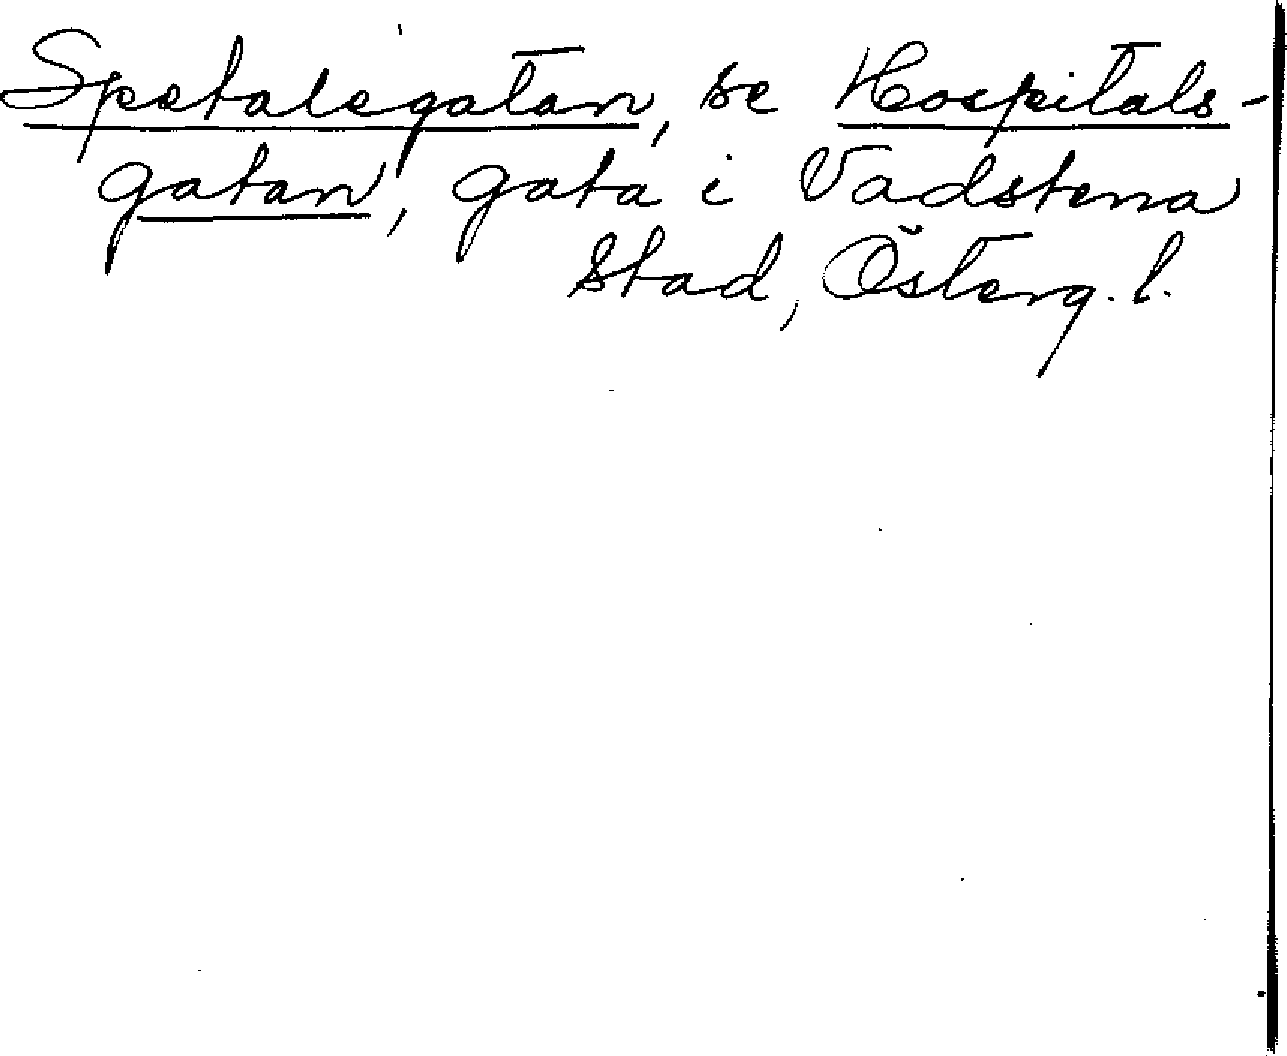 Spetalsgatan, se Hospitals-
gatan, gata i Vadstena
stad, Österg. l.